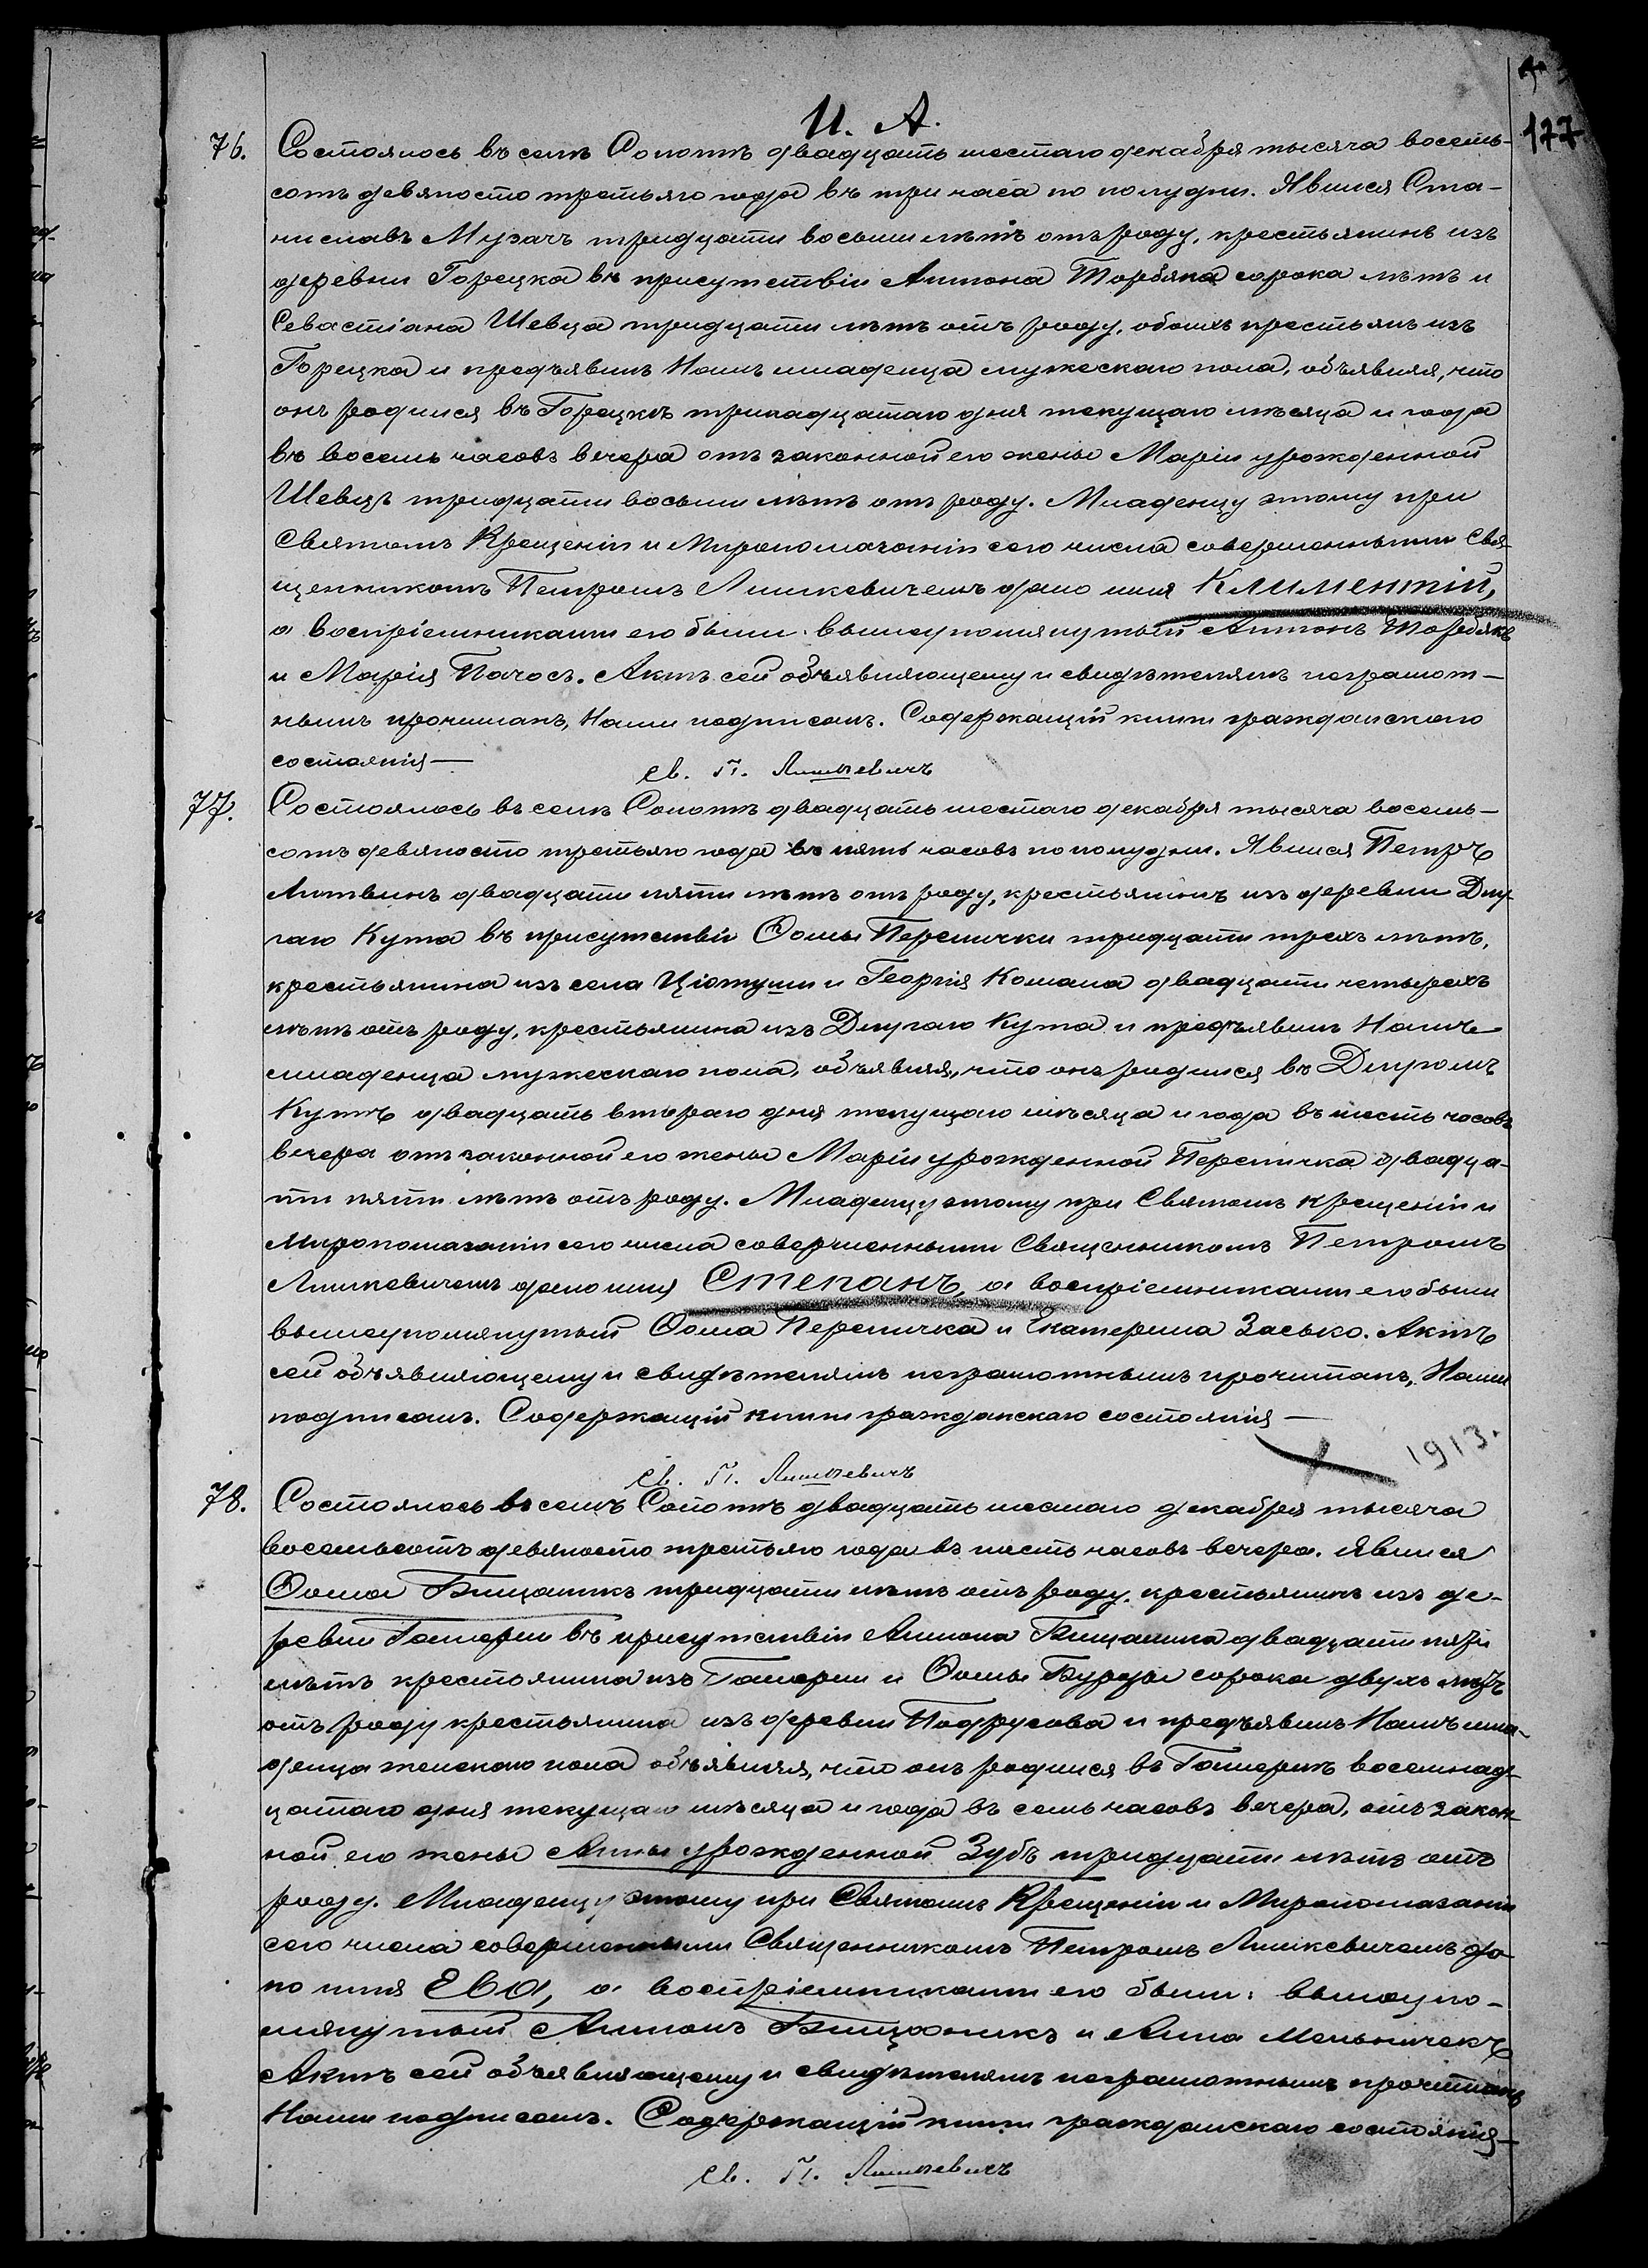 И. А.
177
76. Состоялось въ селѣ Сопотѣ двадцать шестаго декабря тысяча восемь-
сотъ девяносто третьяго года въ три часа по полудни. Явился Ста-
ниславъ Музачъ тридцати восьми лѣтъ отъ роду, крестьянинъ изъ
деревни Горецка въ присутствіи Антона Торбяка сорока лѣтъ и
Севастіана Шевца тридцати лѣтъ отъ роду, обоихъ крестьянъ изъ
Горецка и предъявилъ Намъ младенца мужескаго пола, объявляя, что
онъ родился въ Горецкѣ тринадцатаго дня текущаго мѣсяца и года
въ восемь часовъ вечера отъ законной его жены Маріи урожденной
Шевцъ тридцати восьми лѣтъ отъ роду. Младенцу этому при
Святомъ Крещеніи и Миропомазаніи сего числа совершенными Свя-
щенникомъ Петромъ Лишкевичемъ дано имя Климентій,
а воспріемниками его были: вышеупомянутый Антонъ Торбякъ
и Марія Пачосъ. Актъ сей объявляющему и свидѣтелямъ неграмот-
нымъ прочитанъ, Нами подписанъ. Содержащій книги гражданскаго
состоянія—
Св. П. Лишкевичъ
77. Состоялось въ селѣ Сопотѣ двадцать шестаго декабря тысяча восемь-
сотъ девяносто третьяго года въ пять часовъ по полудни. Явился Петръ
Литвинъ двадцати пяти лѣтъ отъ роду, крестьянинъ изъ деревни Длу-
гаго Кута въ присутствіи Ѳомы Перепички тридцати трехъ лѣтъ,
крестьянина изъ села Ціотуши и Георгія Комана двадцати четырехъ
лѣтъ отъ роду, крестьянина изъ Длугаго Кута и предъявилъ Намъ
младенца мужескаго пола, объявляя, что онъ родился въ Длугомъ
Кутѣ двадцать втораго дня текущаго мѣсяца и года въ шесть часовъ
вечера отъ законной его жены Маріи урожденной Перепичка двадца-
ти пяти лѣтъ отъ роду. Младенцу этому при Святомъ Крещеніи и
Миропомазаніи сего числа совершенными Священникомъ Петромъ
Лишкевичемъ дано имя Степанъ, а воспріемниками его были
вышеупомянутый Ѳома Перепичка и Екатерина Засько. Актъ
сей объявляющему и свидѣтелямъ неграмотнымъ прочитанъ, Нами
подписанъ. Содержащій книги гражданскаго состоянія—
1913.
Св. П. Лишкевичъ
78. Состоялось въ селѣ Сопотѣ двадцать шестаго декабря тысяча
восемьсотъ девяносто третьяго года въ шесть часовъ вечера. Явился
Ѳома Бицаникъ тридцати лѣтъ отъ роду, крестьянинъ изъ де-
ревни Гамерни въ присутствіи Антона Бицаника двадцати пяти
лѣтъ крестьянина изъ Гамерни и Ѳомы Бурды сорока двухъ лѣтъ
отъ роду крестьянина изъ деревни Подрусова и предъявилъ Намъ мла-
денца женскаго пола объявляя, что онъ родился въ Гамернѣ восемнад-
цатаго дня текущаго мѣсяца и года въ семь часовъ вечера, отъ закон-
ной его жены Анны урожденной Зубъ тридцати лѣтъ отъ
роду. Младенцу этому при Святомъ Крещеніи и Миропомазаніи
сего числа совершенными Священникомъ Петромъ Лишкевичемъ да-
но имя Ева, а воспріемниками его были: вышеупо-
мянутый Антонъ Бицаникъ и Анна Мельничекъ
Актъ сей объявляющему и свидѣтелямъ неграмотнымъ прочитанъ
Нами подписанъ. Содержащій книги гражданскаго состоянія—
Св. П. Лишкевичъ